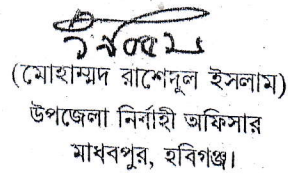 (মোহাম্মদ রাশেদুল ইসলাম)
উপজেলা নির্বাহী অফিসার
মাধবপুর, হবিগঞ্জ।